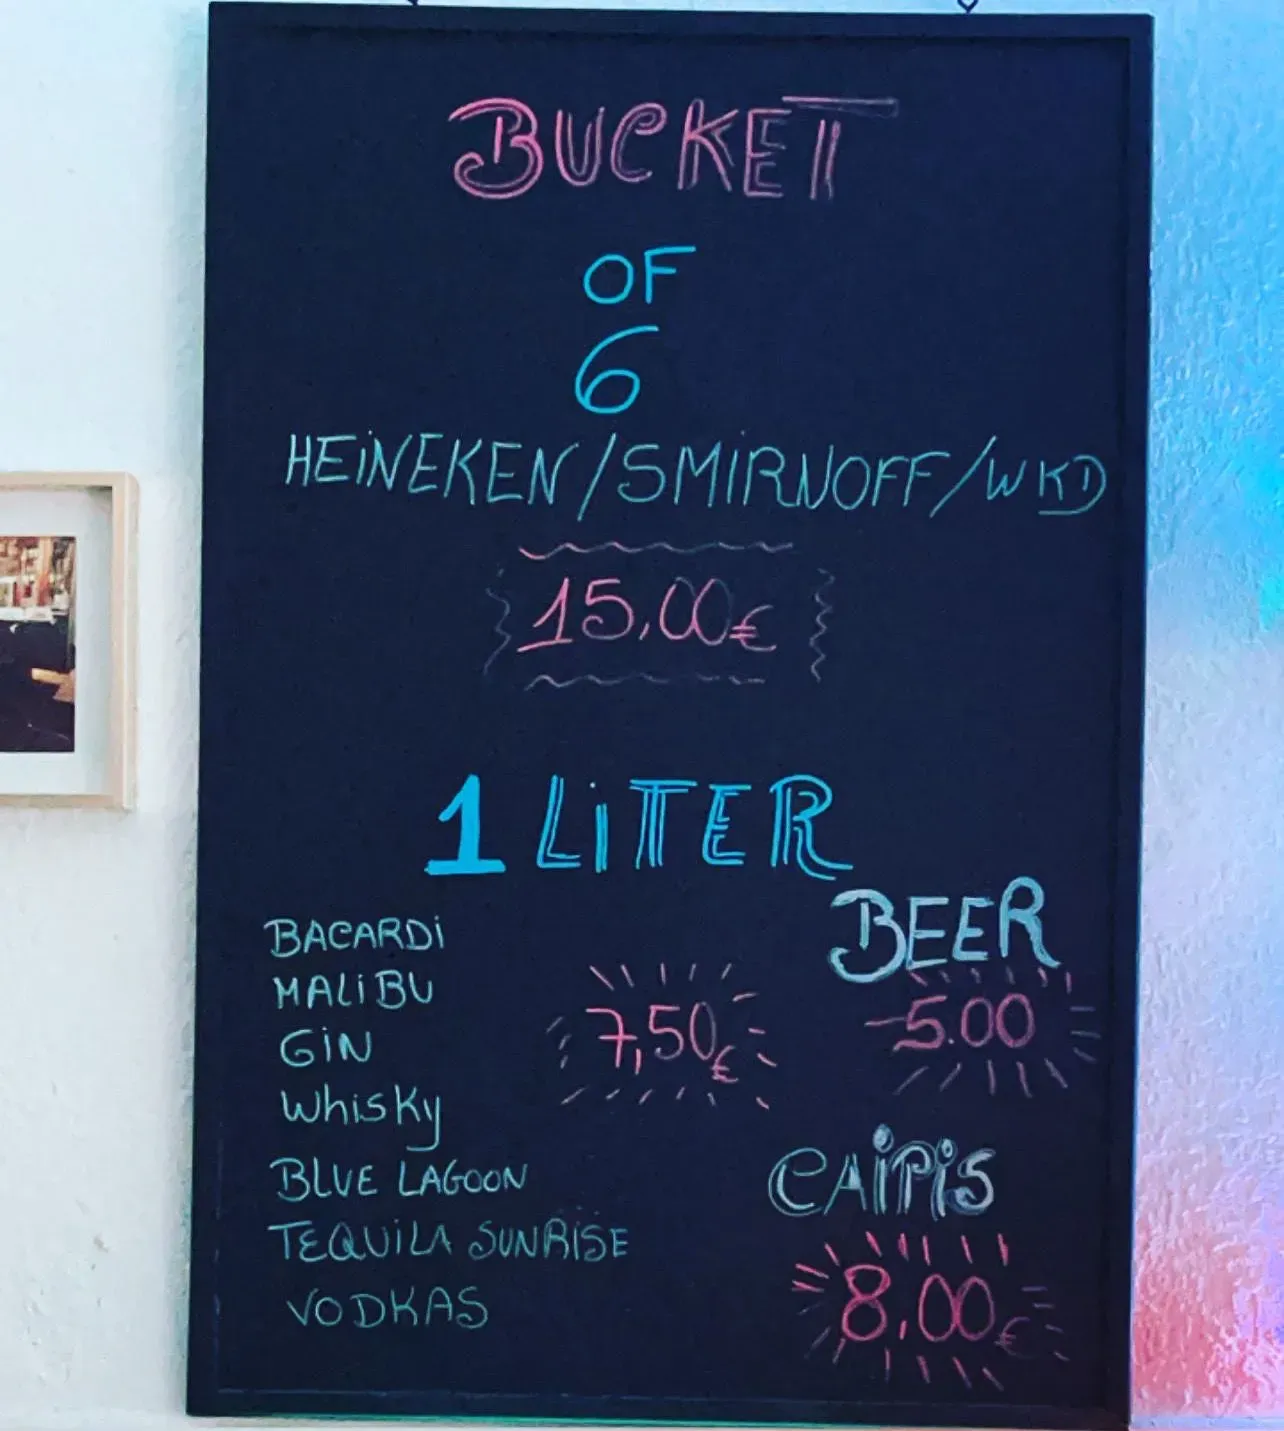 BUCKET
OF
6
HEINEKEN/SMIRNOFF/WKD
15,00€
1 LITER
BACARDI
MALIBU
GIN
WHISKY
BLUE LAGOON
TEQUILA SUNRISE
VODKAS
7,50€
BEER
5.00
CAIPIS
8,00€